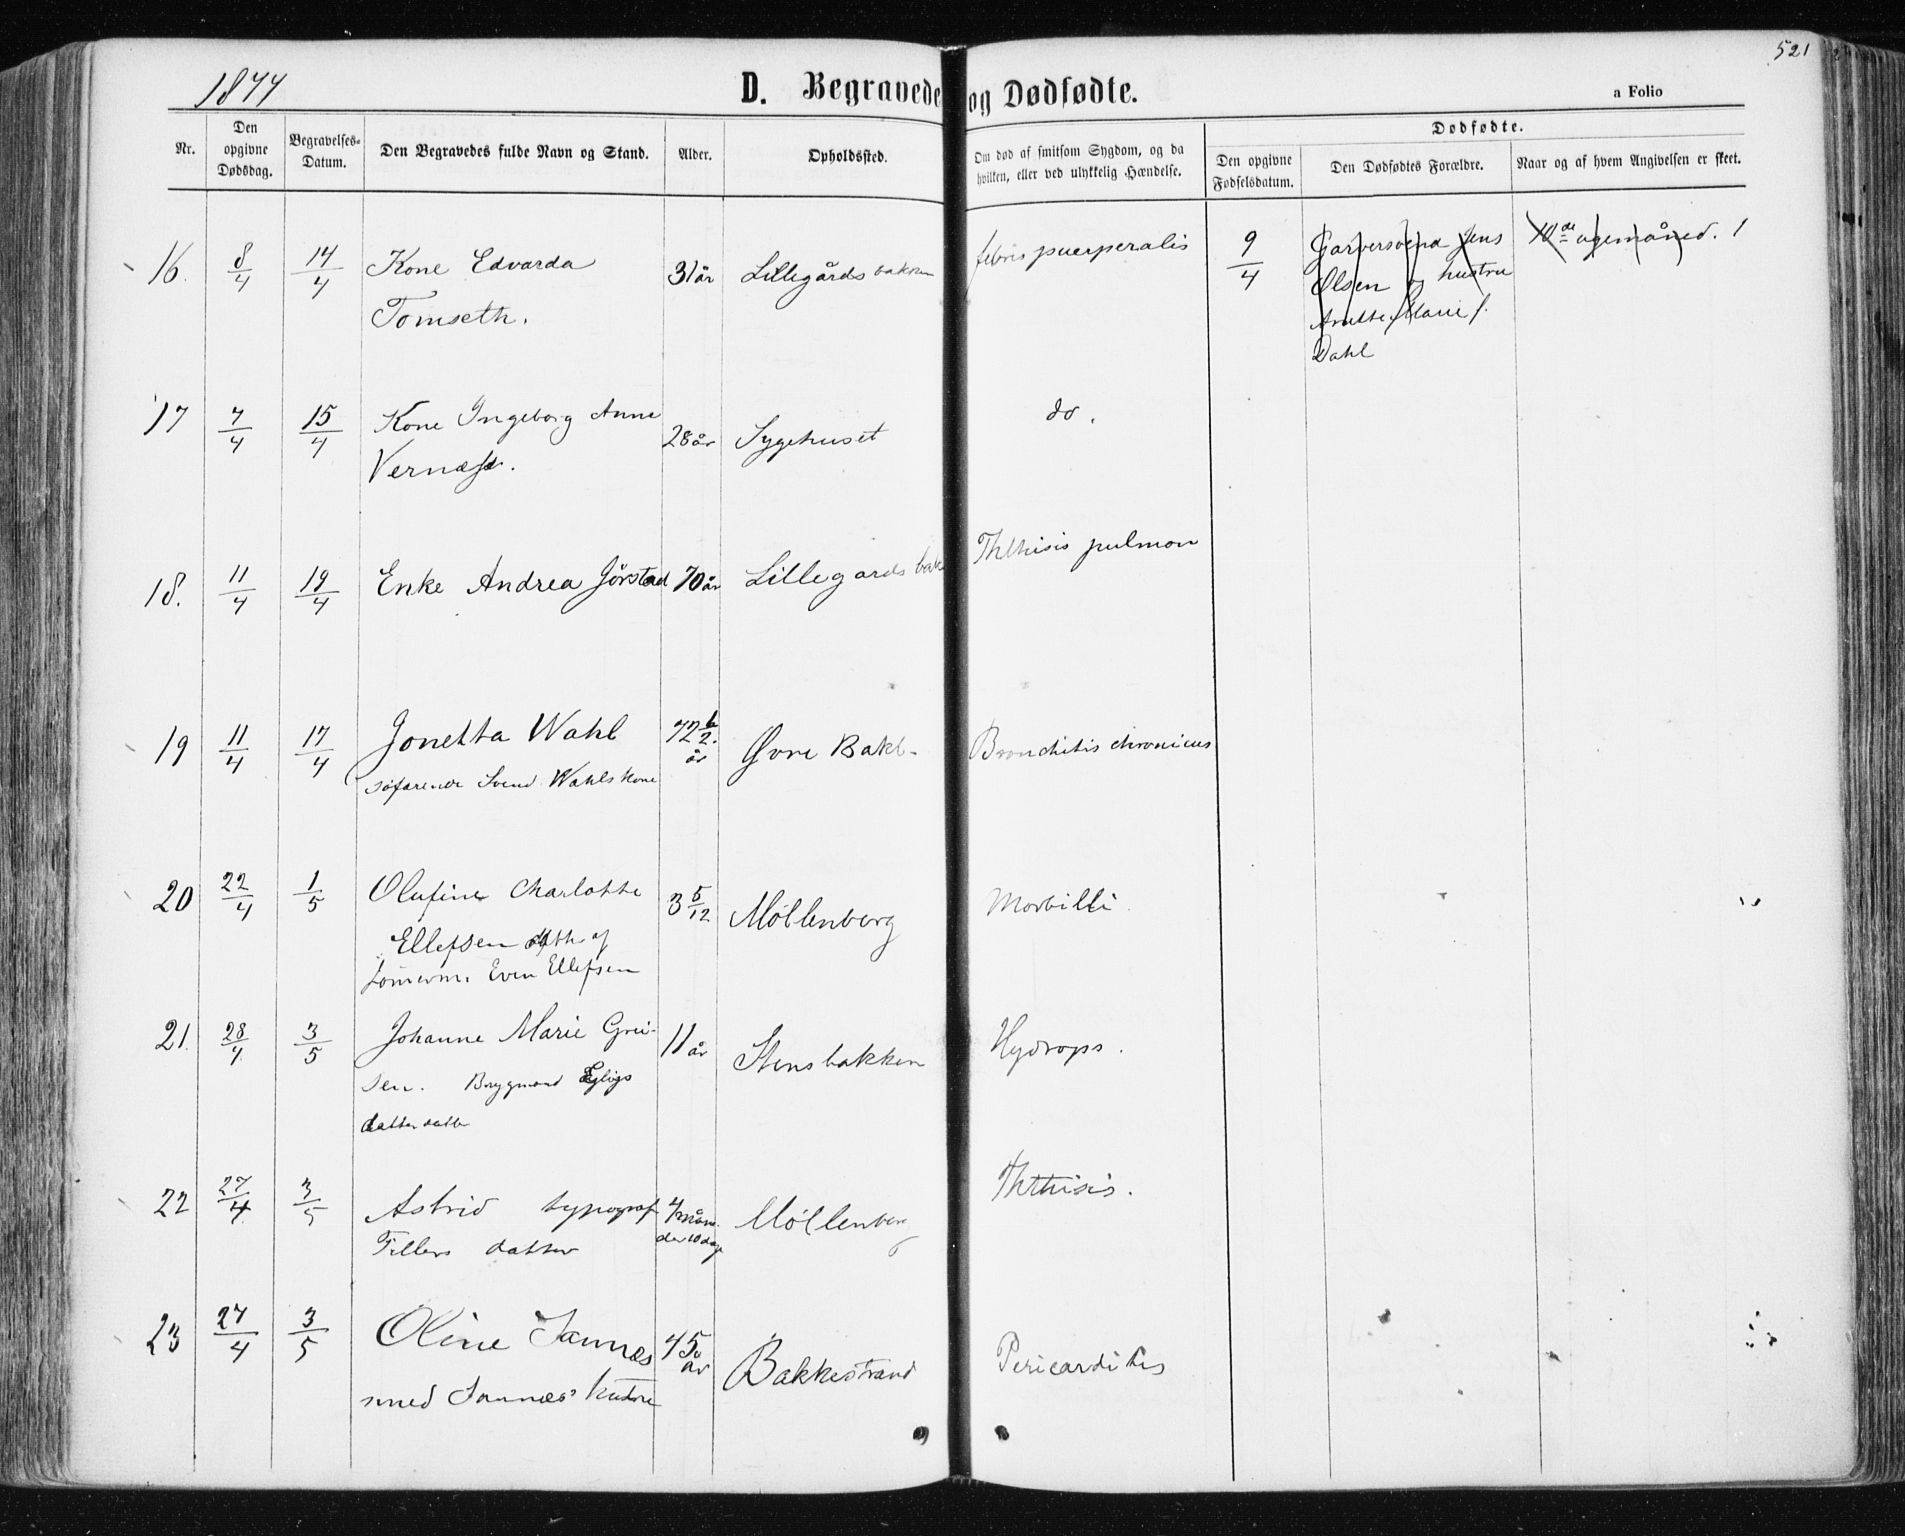 521
1877
D. Begravede og Dødfødte.
a Folio
Nr.
Den opgivne Dødsdag.
Begravelses-Datum.
Den Begravedes fulde Navn og Stand.
Alder.
Opholdssted.
Om død af smitsom Sygdom, og da hvilken, eller ved ulykkelig Hændelse.
Dødfødte.
Den opgivne Fødselsdatum.
Den Dødfødtes Forældre.
Naar og af hvem Angivelsen er skeet.
16. 8/4 14/4 Kone Edvarda 31 år Lillegårdsbakken febris puerperalis 9/4 Garversvend Jens 10de 1
Tomseth. Olsen og hustru
Anette Marie f.
Dahl
17 7/4 15/4 Kone Ingeborg Anne 28 år Sygehuset do.
Vernæs.
18. 11/4 19/4 Enke Andrea Jørstad 70 år Lillegårdsbak Phthisis pulmon
19 11/4 17/4 Jonetta Wahl 72 år Øvre Bakl- Bronchitis chronicus
søfarende Svend Wahls kone
20 22/4 1/5 Olufine Charlotte 3 5/12 Møllenberg Morbilli
Ellefsen datter af
Even Ellefsen
21 28/4 3/5 Johanne Marie Grei- 11 år Stensbakken Hydrops.
sen. Brygmand
datter datter
22 27/4 3/5 Astrid typograf 4 måne- Møllenberg Phthisis.
Tillers datter der 10 dage
23 27/4 3/5 Oline Sannes 45 år Bakkestrand Pericarditis
smed Sannes' hustru